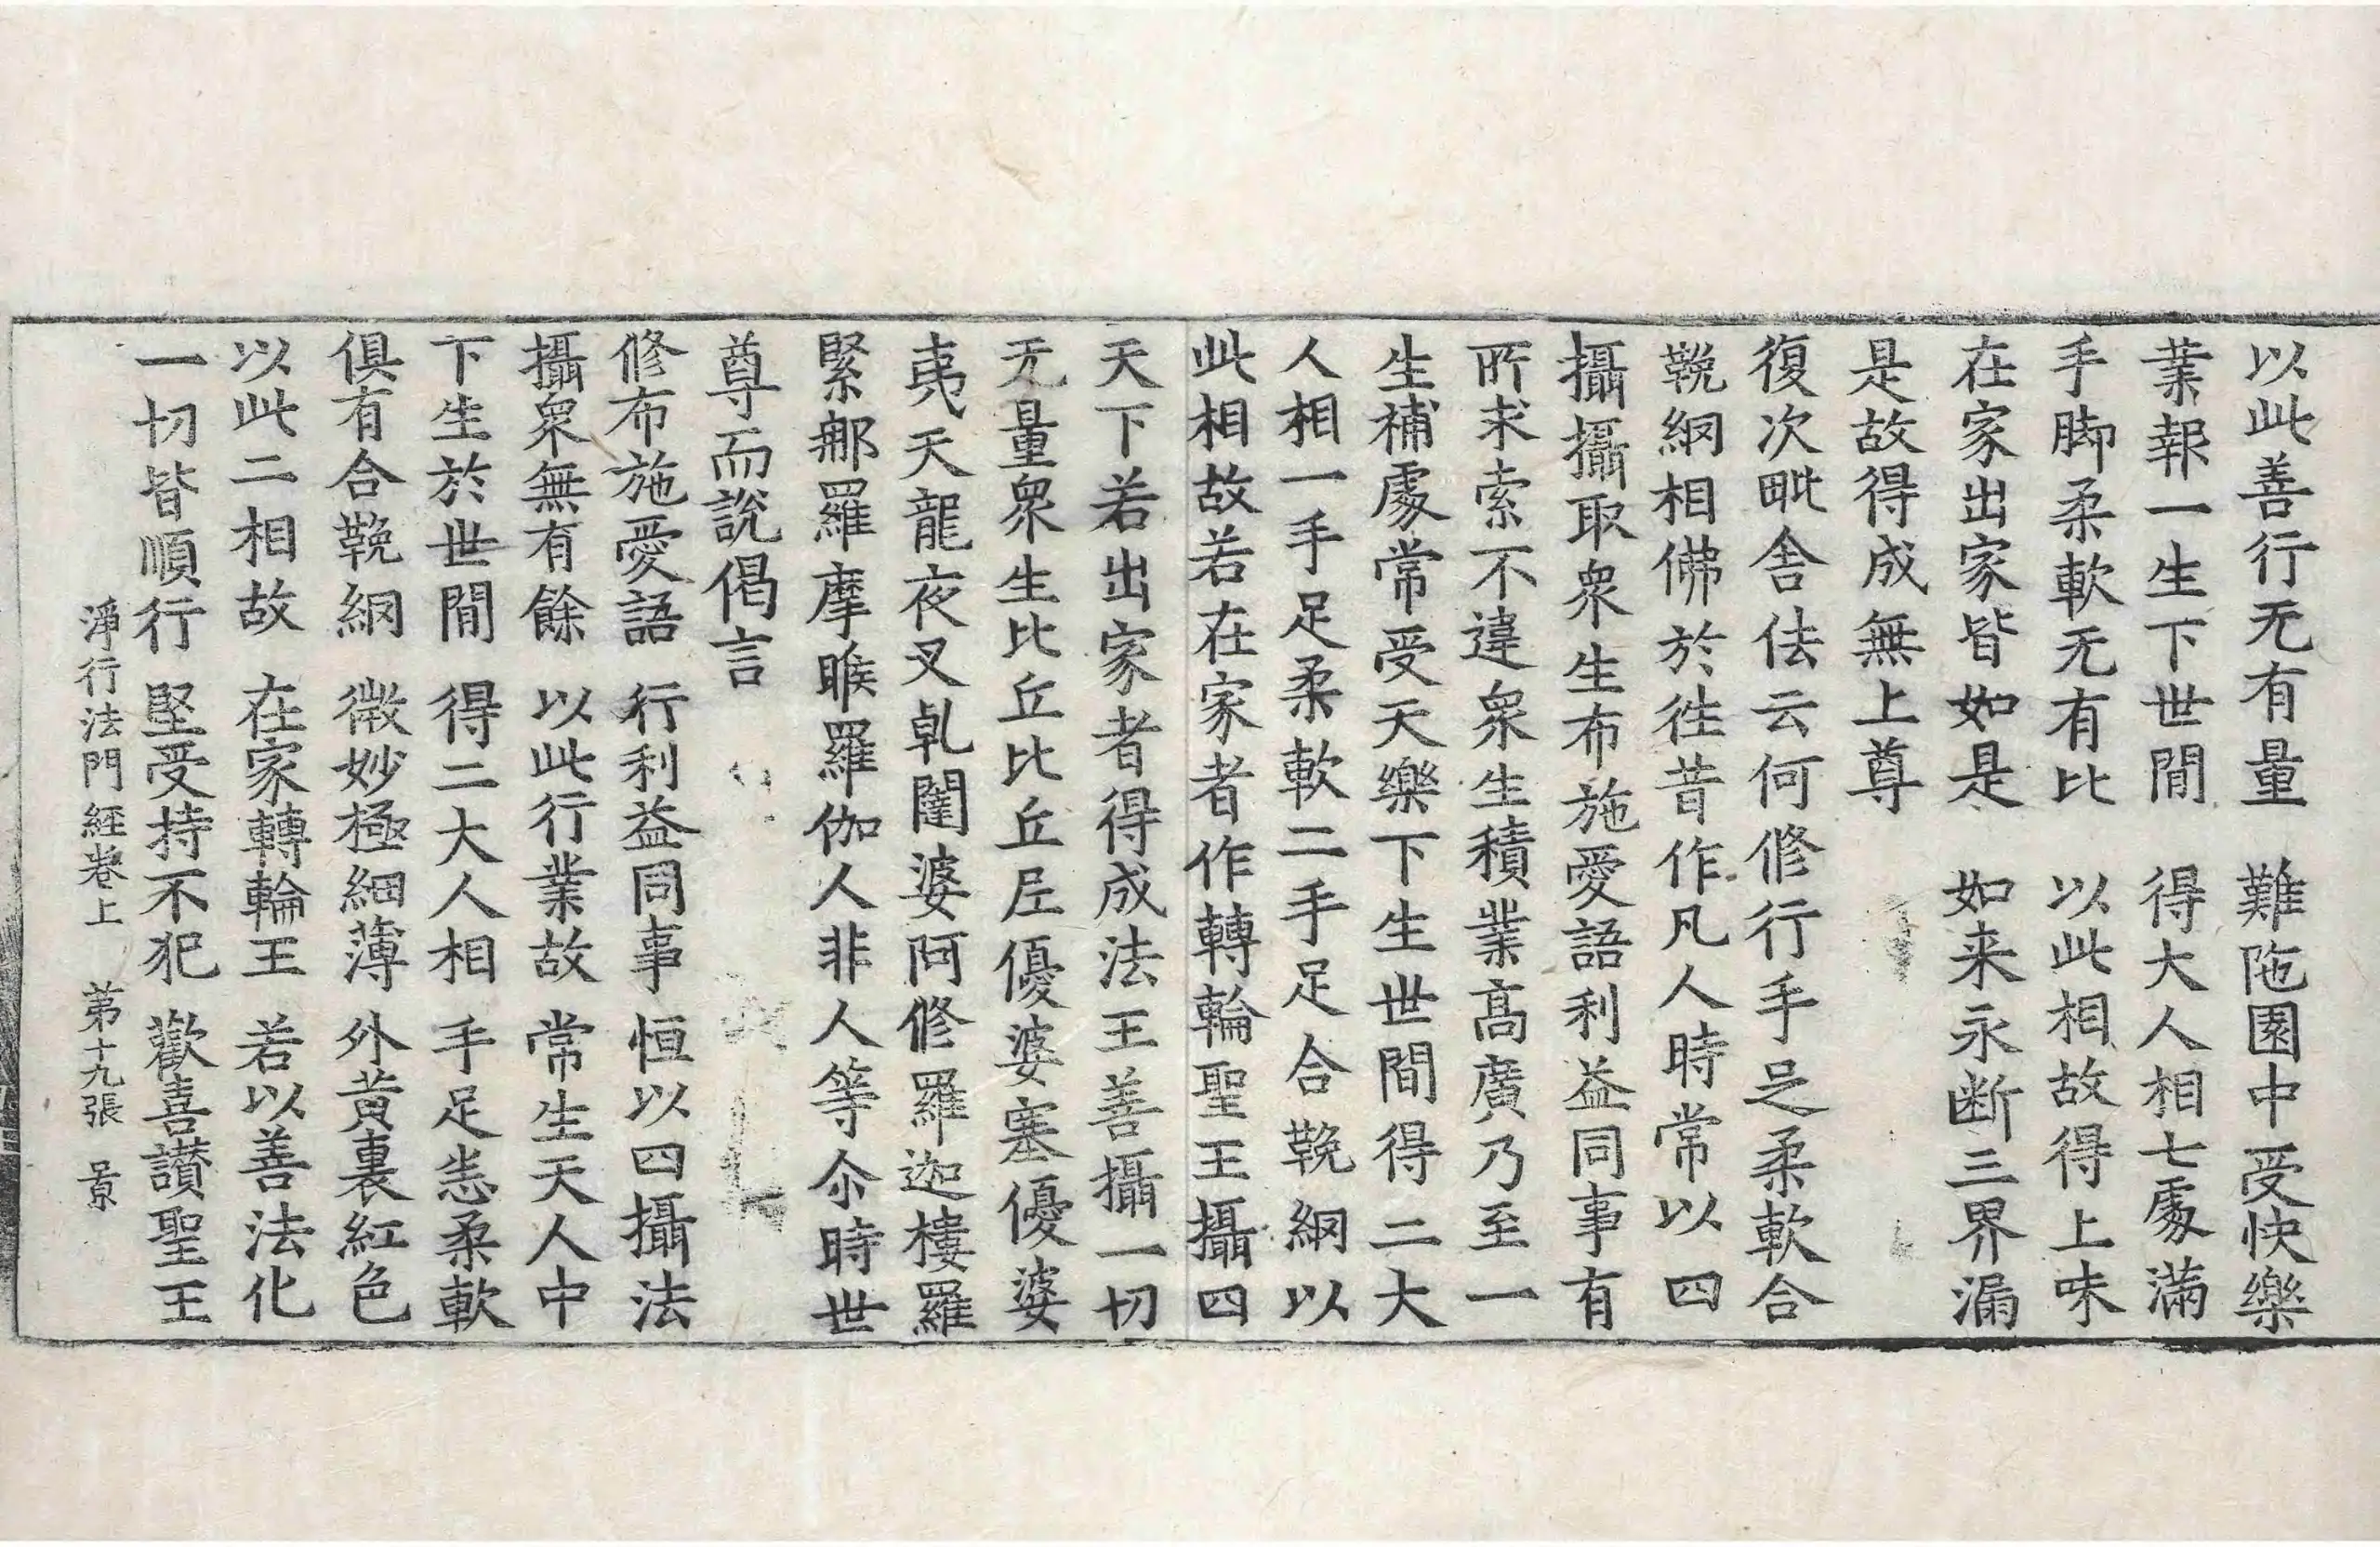 以此善行无有量　難陁園中受快樂
業報一生下世間　得大人相七處滿
手脚柔軟无有比　以此相故得上味
在家出家皆如是　如来永断三界漏
是故得成無上尊
復次毗舍佉云何修行手足柔軟合
鞔網相佛於徃昔作凡人時常以四
攝攝取衆生布施愛語利益同事有
所求索不違衆生積業髙廣乃至一
生補處常受天樂下生世間得二大
人相一手足柔軟二手足合鞔網以
此相故若在家者作轉輪聖王攝四
天下若出家者得成法王善攝一切
无量衆生比丘比丘尼優婆塞優婆
夷天龍夜叉乹闥婆阿修羅迦樓羅
緊那羅摩睺羅伽人非人等尒時世
尊而說偈言
修布施愛語　行利益同事　恒以四攝法
攝衆無有餘　以此行業故　常生天人中
下生於世間　得二大人相　手足恙柔軟
俱有合鞔網　微妙極細薄　外黄裏紅色
以此二相故　在家轉輪王　若以善法化
一切皆順行　堅受持不犯　歡喜讃聖王
淨行法門經卷上　第十九張　景